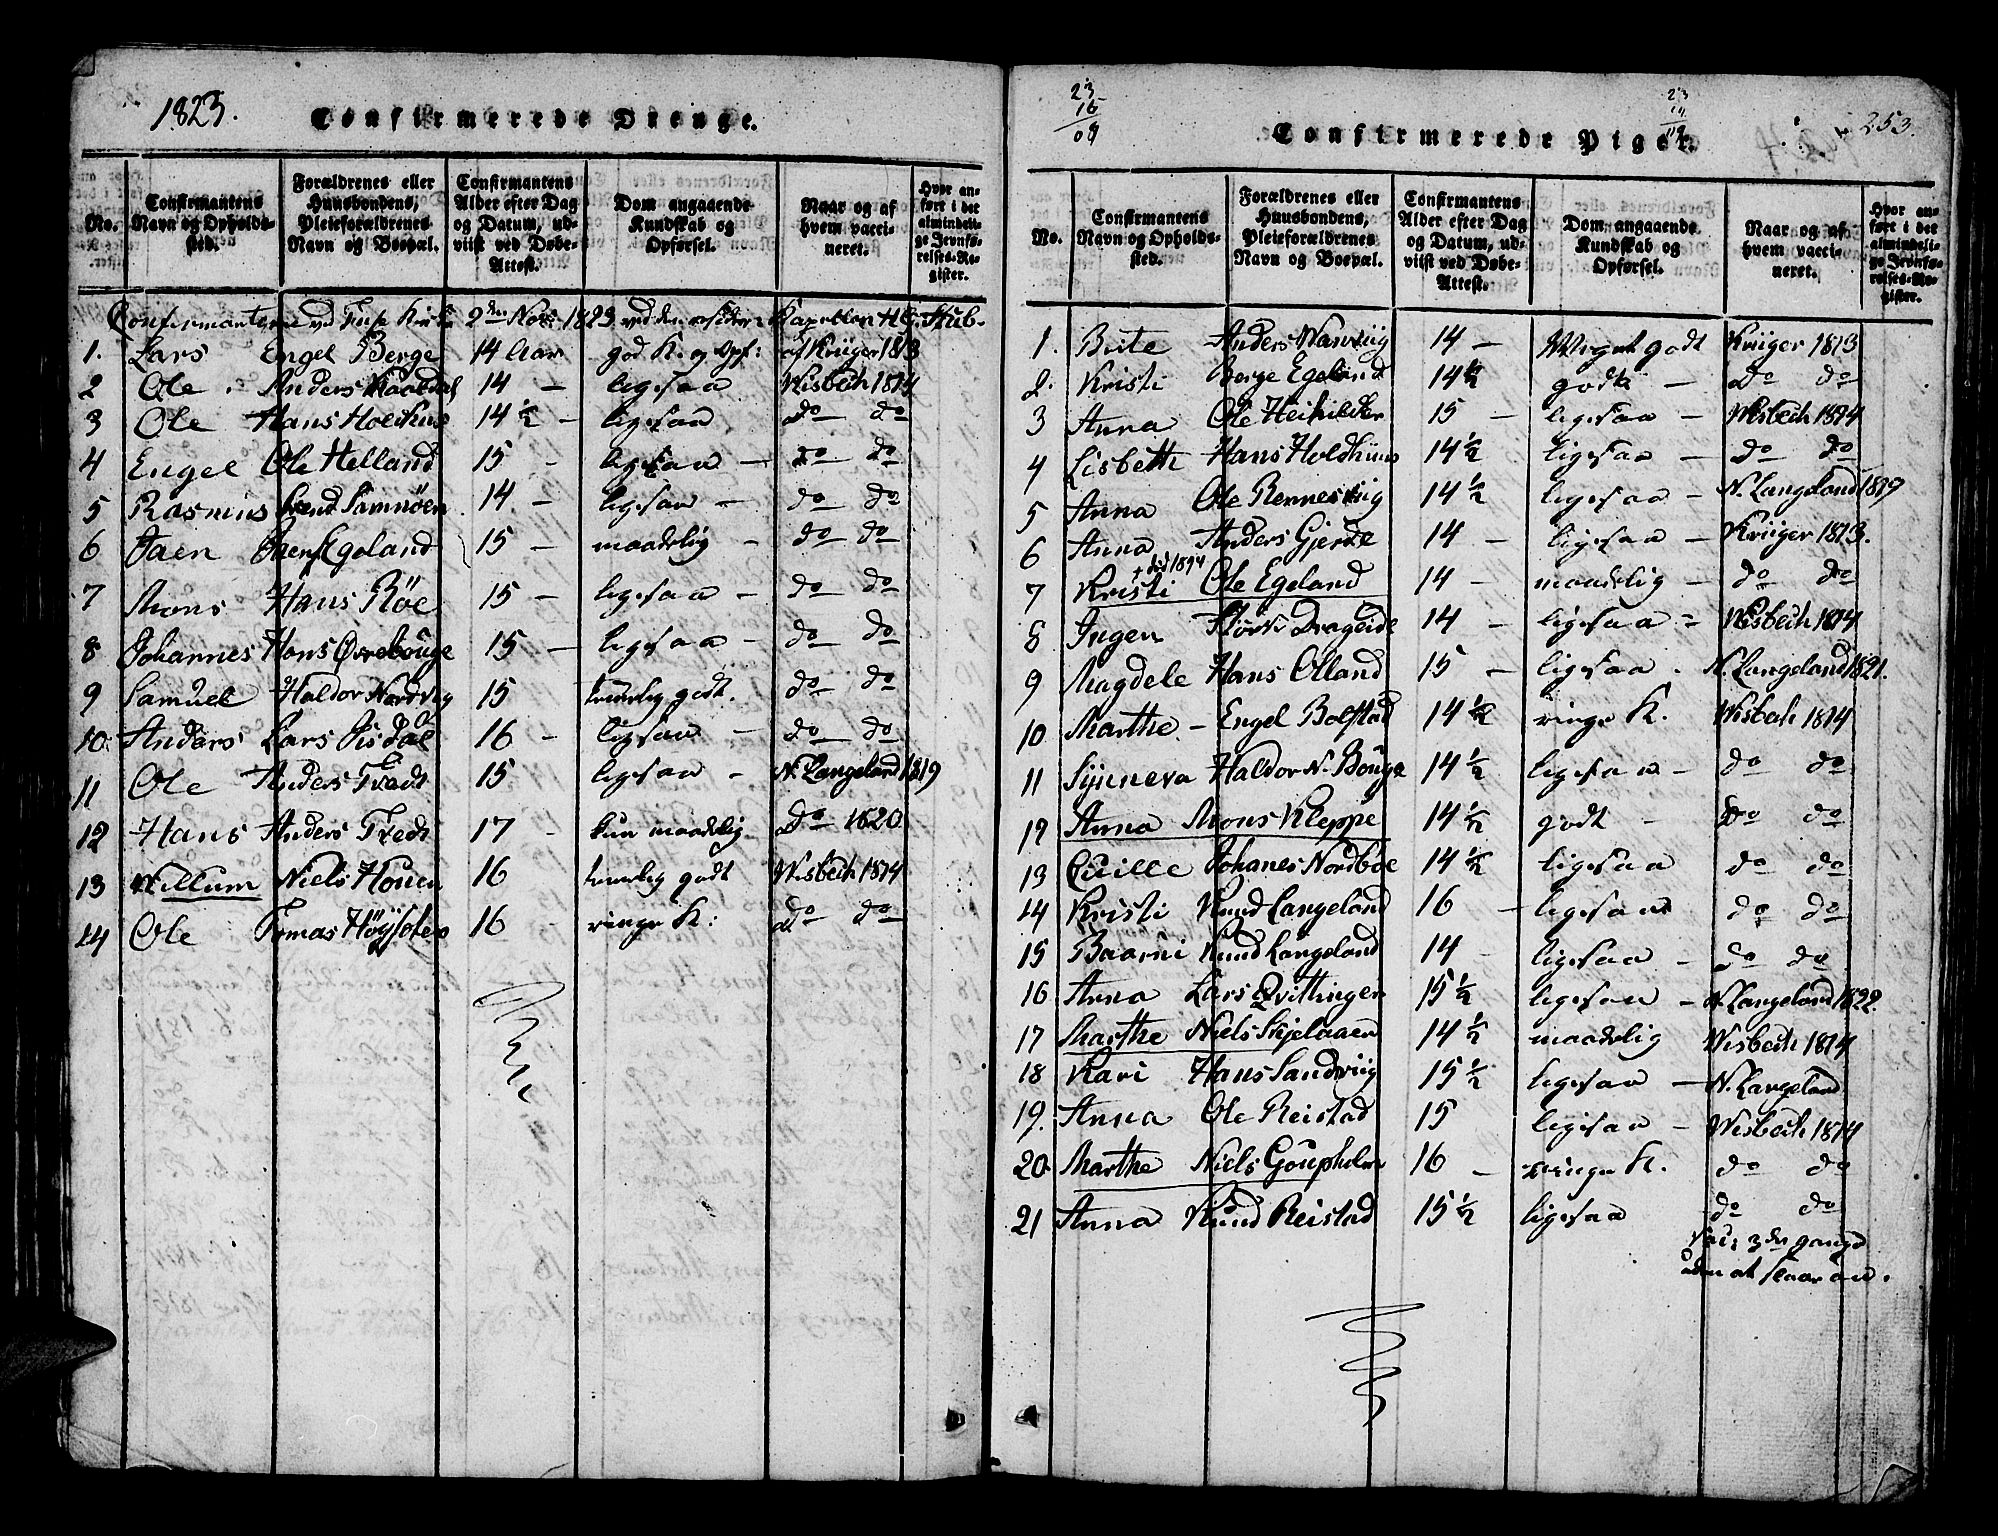 1823. Confirmerede Drenge.
No. Confirmantens Navn og Opholdssted. Forældrenes eller Huusbondens, Pleieforældrenes Navn og Boepæl. Confirmantens Alder efter Dag og Datum, udviist ved Døbe-Attest. Dom angaaende Kundskab og Opførsel. Naar og af hvem vaccineret. Hvor anført i det almindelige Jevnførelses-Register.
Confirmanterne ved Fuse Kirke 2den Novr 1823 ved den Kapellan H.G. Hub-
1. Lars Engel Berge 14 Aar god K. og Opf: af Krüger 1813
2 Ole Anders Kaaldal 14 – ligesaa Wisbech 1814
3 Ole Hans Holdhuus 14 ½ – ligesaa do do
4 Engel Ole Helland 15 – ligesaa – do do
5 Rasmus Svend Samnøen 14 – ligesaa – do do
6 Jaen Jaen Egeland 15 – maadelig – do do
7 Mons Hans Röe 15 – ligesaa – do do
8 Johannes Hans Øvrebouge 15 – ligesaa – do do
9 Samuel Haldor Nordvig 15 temmelig godt. do do
10 Anders Lars Sisdal 16 – ligesaa – do do
11 Ole Anders Tvedt 15 ligesaa – N. Langeland 1819
12 Hans Anders Tvedt 17 – kun maadelig do 1820
13 Willum Niels Houen 16 temmelig godt Wisbech 1814
14 Ole Tomas Höysæter 16 – ringe K: do do
23
16
07
23
253.
Confirmerede Piger.
No. Confirmantens Navn og Opholdssted. Forældrenes eller Huusbondens, Pleieforældrenes Navn og Boepæl. Confirmantens Alder efter Dag og Datum, udviist ved Døbe-Attest. Dom angaaende Kundskab og Opførsel. Naar og af hvem vaccineret. Hvor anført i det almindelige Jevnførelses-Register.
1. Brite Anders Narviig 14 – Meget godt Krüger 1813
2. Kristi Berge Egeland 14 ½ godt – do do
3 Anna Ole Heihilder 15 – ligesaa – Wisbech 1814
4 Lisbeth Hans Holdhuus 14 ½ ligesaa – do do
5 Anna Ole Rennesviig 14 ½ ligesaa – N. Langeland 1819
6 Anna Anders Gjerde 14 – ligesaa – Krüger 1813.
7 Kristi Ole Egeland 14 – maadelig – do do
8 Ingen Störk Drageide 14 – ligesaa – Wisbech 1814
9 Magdele Hans Olland 15 – ligesaa – N. Langeland 1821.
10 Marthe – Engel Bolstad 14 ½ ringe K. Wisbech 1814
11 Synneva Haldor N. Bouge 14 ½ ligesaa – do do
12 Anna Mons Kleppe 14 ½ godt – do do
13 Cicille Johanes Nordböe 14 ½ ligesaa do do
14 Kristi Knud Langeland 16 – ligesaa do do
15 Baarni Knud Langeland 14 – ligesaa – do do
16 Anna Lars Qvittingen 15 ½ ligesaa – N. Langeland 1822.
17 Marthe Niels Skjelaaen 14 ½ maadelig Wisbech 1814
18 Kari Hans Sandviig 15 ½ ligesaa – N. Langeland
19. Anna Ole Reistad 15 ligesaa – Wisbech 1814
20 Marthe Niels Goupholm 16 – ringe K. do do
21 Anna Knud Reistad 15 ½ ligesaa do do
Vac: 3den gang
uden at slaar an.